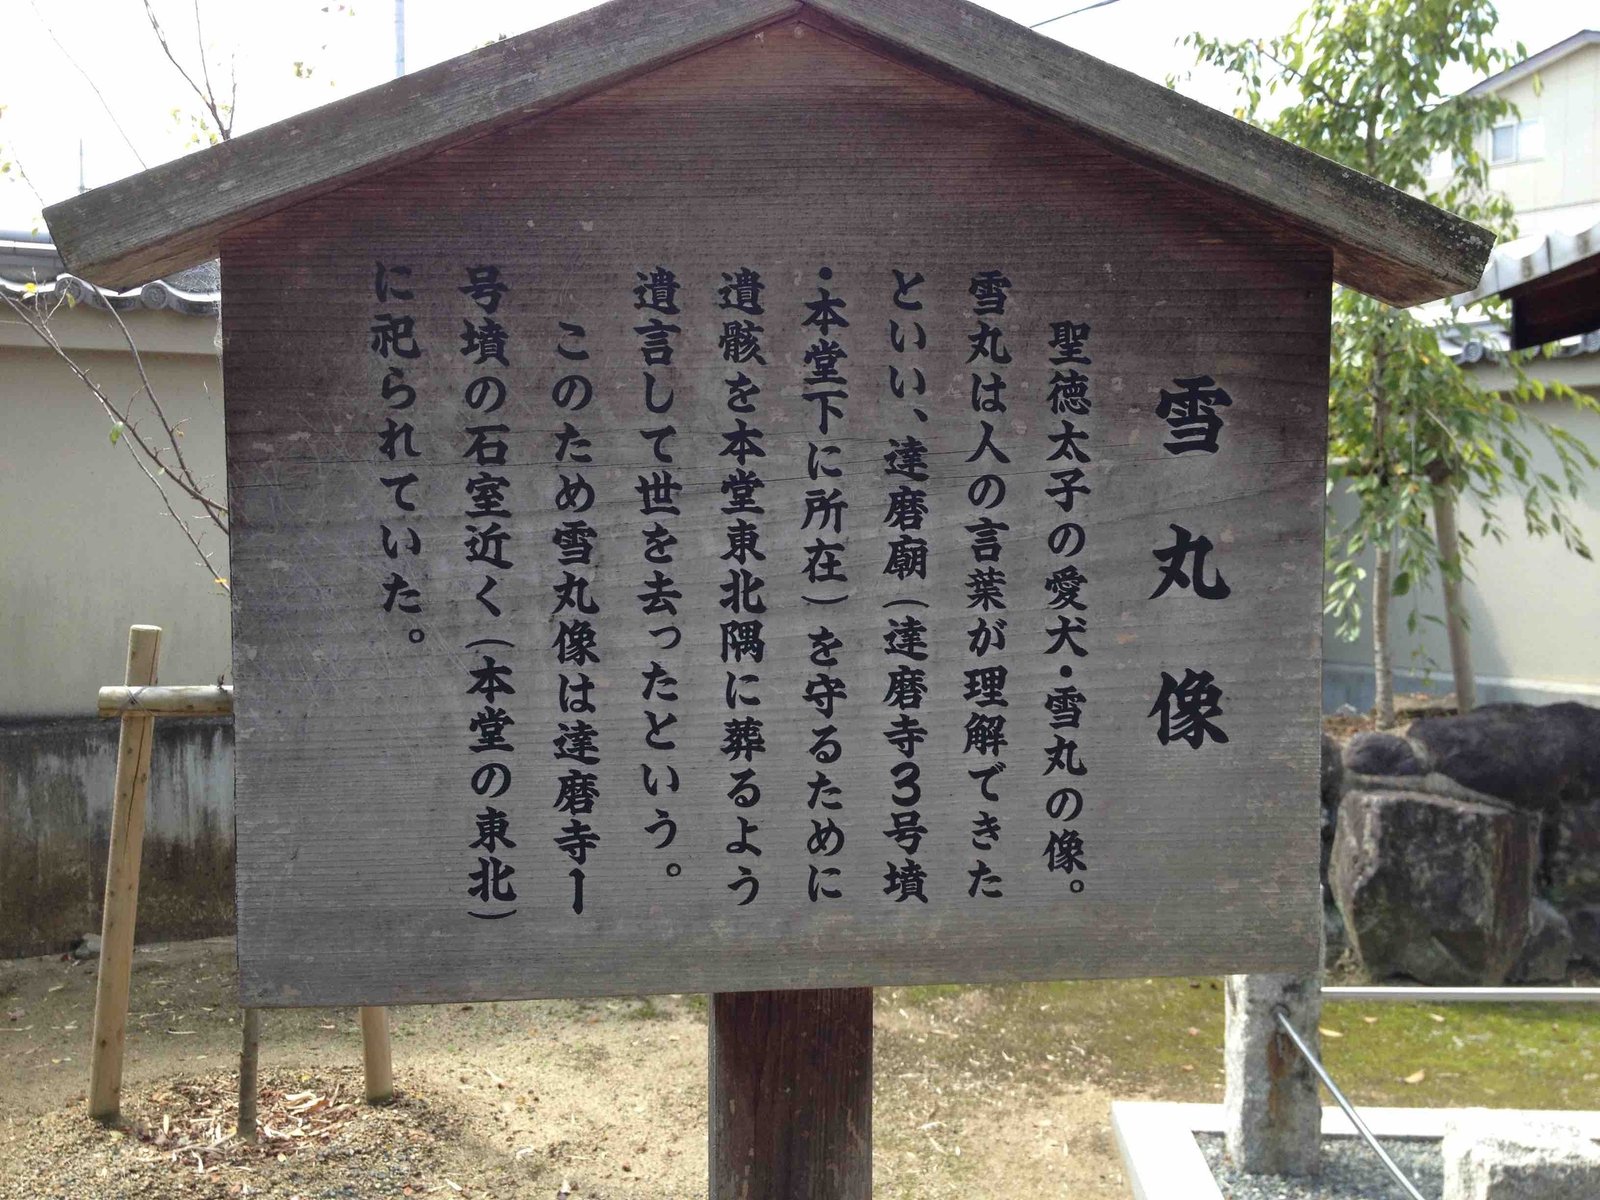 雪丸像
聖徳太子の愛犬・雪丸の像。
雪丸は人の言葉が理解できた
といい、達磨廟(達磨寺3号墳
・本堂下に所在)を守るために
遺骸を本堂東北隅に葬るよう
遺言して世を去ったという。
このため雪丸像は達磨寺1
号墳の石室近く(本堂の東北)
に祀られていた。